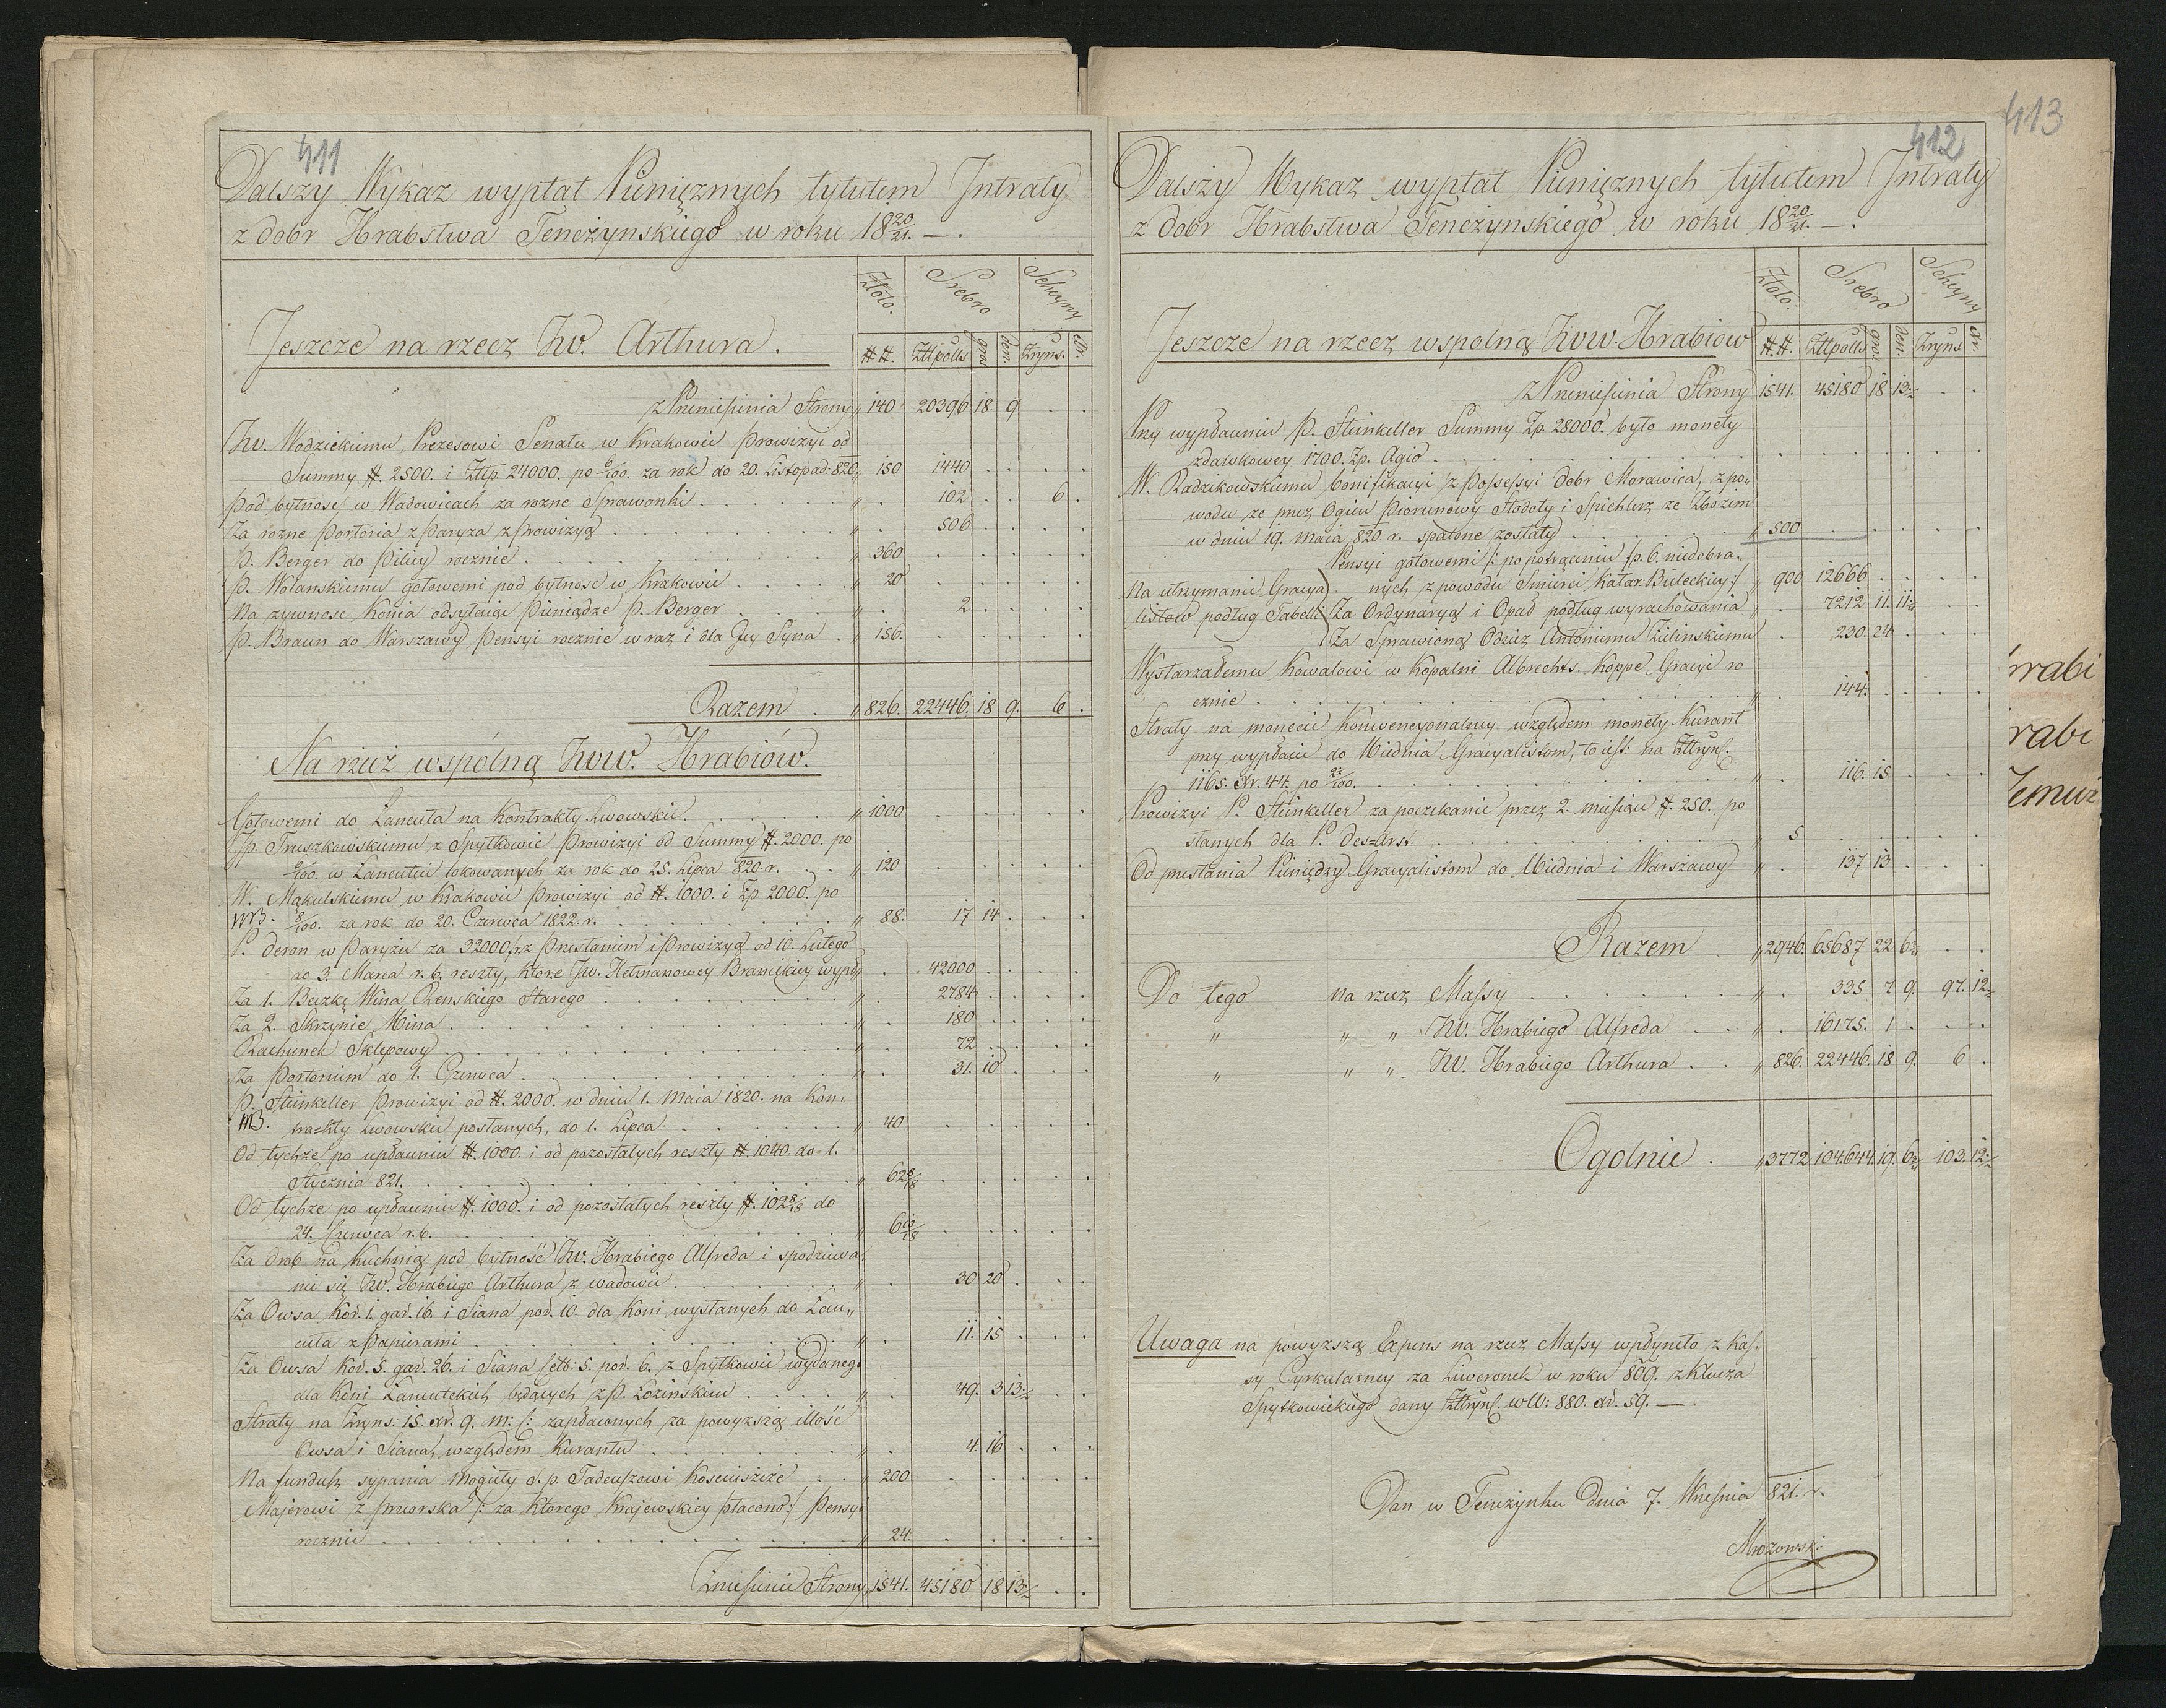 411
Dalszy Wykaz wypłat Pieniężnych tytułem Intraty
z dobr Hrabstwa Tenczynskiego w roku 18 20/21. —.
Złoto. Srebro Scheyny
Jeszcze na rzecz JW. Arthura.
##. Złłpolls gros den. Zryns. Xr.
z Przeniesienia Strony " 140 20396 18. 9 . .
JW. Wodzickiemu Prezesowi Senatu w Krakowie Prowizyi od
Summy #. 2500. i Złlp. 24000. po 6/100. za rok do 20. Listopad: 820. " 150 1440 . . . .
Pod bytność w Wadowicach za rozne Sprawonki . . . " . 102 . . 6 .
Za rozne Portoria z Paryza z Prowizyą . . . " . 506 . . . .
P. Berger do Pilicy rocznie . . . " 360 . . . . .
P. Wolanskiemu gotowemi pod bytnosc w Krakowie . . . " 20 . . . . .
Na zywnosc Konia odsyłaiąc Pieniądze P. Berger . . . " . 2 . . . .
P. Braun do Warszawy Pensyi rocznie wraz i dla Jey Syna . " 156. . . . . .
Razem . " 826. 22446. 18 9. 6 .
Na rzecz wspólną JWW. Hrabiów.
Gotowemi do Łancuta na Kontrakty Lwowskie . . . " 1000 . . . . .
Jp. Truszkowskiemu z Spytkowic Prowizyi od Summy #. 2000. po
6/100. w Łancutie lokowanych za rok do 25. Lipca 820. r. . . " 120 . . . . .
W. Mąkulskiemu w Krakowie Prowizyi od #. 1000. i Zp. 2000. po
8/100. za rok do 20. Czerwca 1822. r. . . . " 88. 17 14 . . .
P. deron w Paryzu za 32000 z Przesłaniem i Prowizyą od 10. Lutego
do 3. Marca r. b. reszty, ktore JW. Hetmanowey Branickiey wypł: . 42000 . . . .
Za 1. Beczkę Wina Renskiego Starego . . . " . 2784 . . . .
Za 2. Skrzynie Wina . . . " . 180 . . . .
Rachunek Sklepowy . . . " . 72 . . . .
Za Portorium do 1. Czerwca . . . " . 31. 10 . . .
P. Steinkeller Prowizyi od #. 2000. w dniu 1. Maia 1820. na Kon-
trakty Lwowskie posłanych, do 1. Lipca . . . " 40 . . . . .
Od tychże po upłaceniu #. 1000. i od pozostałych reszty #. 1040. do 1.
Stycznia 821. . . . " 62 8/18 . . . . .
Od tychze po upłaceniu #. 1000. i od pozostałych reszty #. 102 8/18 do
24. Czerwca r. b. . . . " 6 10/18 . . . . .
Za drob na Kuchnią pod bytność JW. Hrabiego Alfreda i spodziewa-
nie się JW. Hrabiego Arthura z wadowic . . . " . 30 20 . . .
Za Owsa Kor. 1. gar. 16. i Siana por. 10. dla Koni wysłanych do Łan"
cuta z Papierami . . . " . 11. 15 . . .
Za Owsa Kor. 5. gar. 26. i Siana Cett: 5. por. 6, z Spytkowic wydanego
dla Koni Łancutskich będących z P. Łozinskim . . . " . 49. 3 13 1/2 . .
Straty na Zryns: 15. Xr. 9. m: /: zapłaconych za powyzszą illość
Owsa i Siana, względem Kurantu . . . " . 4. 16 . . .
Na fundusz sypania Mogiły ś. p. Tadeuszowi Kosciuszkze . . " 200 . . . . .
Majerowi z Przeworska /: za ktorego Krajewskiey płacono :/ Pensyi
rocznie . . . " 24. . . . . .
Zniesienie Strony " 1541. 45180 18 13 1/2 . .
412
413
Dalszy Wykaz wypłat Pieniężnych tytułem Intraty
z dobr Hrabstwa Tenczynskiego w roku 18 20/21. —.
Złoto. Srebro Scheyny
Jeszcze na rzecz wspolną JWW. Hrabiow
##. Złłpolls gros. den. Zryns Xr.
Z Przeniesienia Strony 1541. 45180 18 13 1/2 . .
Przy wypłaceniu P. Steinkeller Summy Zp. 28000. było monety
zdawkowey 1700. Zp. Agio . . .
W. Radzikowskiemu bonifikacyi z Possessyi dobr Morawica, z po-
wodu ze przez Ogien Piorunowy Stodoły i Spichlerz ze Zbozem
w dniu 19. Maia 820. r. spalone zostały . . . " 500 . . . . .
Pensyi gotowemi /: po potrąceniu fp. 6. niedobra-
Na utrzymanie Gracya- nych z powodu Smierci Katar: Bieleckiey :/ " 900 12666 . . . .
listow podług Tabelli Za Ordynaryą i Opał podług wyrachowania " . 7212 11. 11 1/4 . .
Za Sprawioną Odziez Antoniemu Zielinskiemu . 230. 24 . . .
Wystarzałemu Kowalowi w Kopalni Albrechts. Koppe Gracyi ro
cznie . . . " . 144. . . . .
Straty na monecie Konwencyonalney względem monety Kurant
przy wypłacie do Wiednia Gracyalistom, to iest: na Złłryns.
1165. Xr. 44. po 2 1/2/100. . . . " . 116. 15 . . .
Prowizyi P. Steinkeller za poczekanie przez 2. miesiące #. 250. po
słanych dla P. Des-Ars. . . . " 5 . . . . .
Od przesłania Pieniędzy Gracyalistom do Wiednia i Warszawy " . 137 13 . . .
Razem . " 2946. 65687 22 6 3/4 . .
Do tego na rzecz Massy . . . " . 335 7 9. 97. 12 1/2
" " " JW. Hrabiego Alfreda . . " . 16175. 1 . . .
" " " JW. Hrabiego Arthura . . " 826. 22446. 18 9. 6 .
Ogolnie . " 3772 104.644. 19. 6 3/4 103. 12 1/2
Uwaga na powyzszą Expens na rzecz Massy wpłyneło z Kas-
sy Cyrkularney za Liweronek w roku 809. z Klucza
Spytkowickiego dany Złłryns. wW: 880. Xr. 59. —.
Dan w Tenczynku dnia 7. Wrzesnia 821. r.
Mrozowski
hrabi
rabi